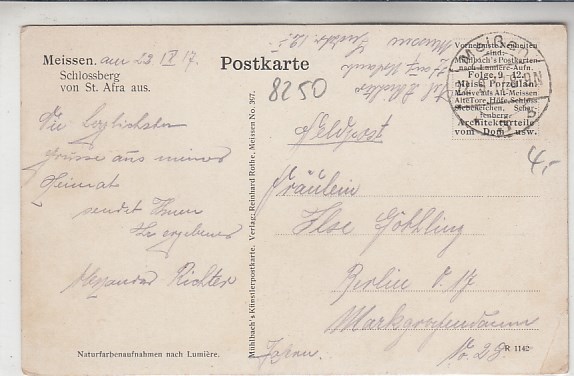 Meissen. am 23 IX 17.
Schlossberg
von St. Afra aus.
Die herzlichsten
Grüsse aus meiner
Heimat
sendet Ihnen
Ihr ergebener
Alexander Richter
Naturfarbenaufnahmen nach Lumière.
Mühlbach's Künstlerpostkarte. Verlag: Reinhard Rothe, Meissen No. 367.
Postkarte
8250
Feldpost
Fräulein
Ilse Göthling
Berlin O. 17
Markgrafendamm
No. 28
R 1142
Meißen
Vornehmste Neuheiten
sind:
Mühlbach's Postkarten
nach Lumière-Aufn.
Folge 9, 12.
Meiss. Porzellan.
Motive aus Alt-Meissen
Alte Tore, Höfe, Schloss
Siebeneichen, Schar-
fenberg.
Architekturteile
vom Dom usw.
4.-